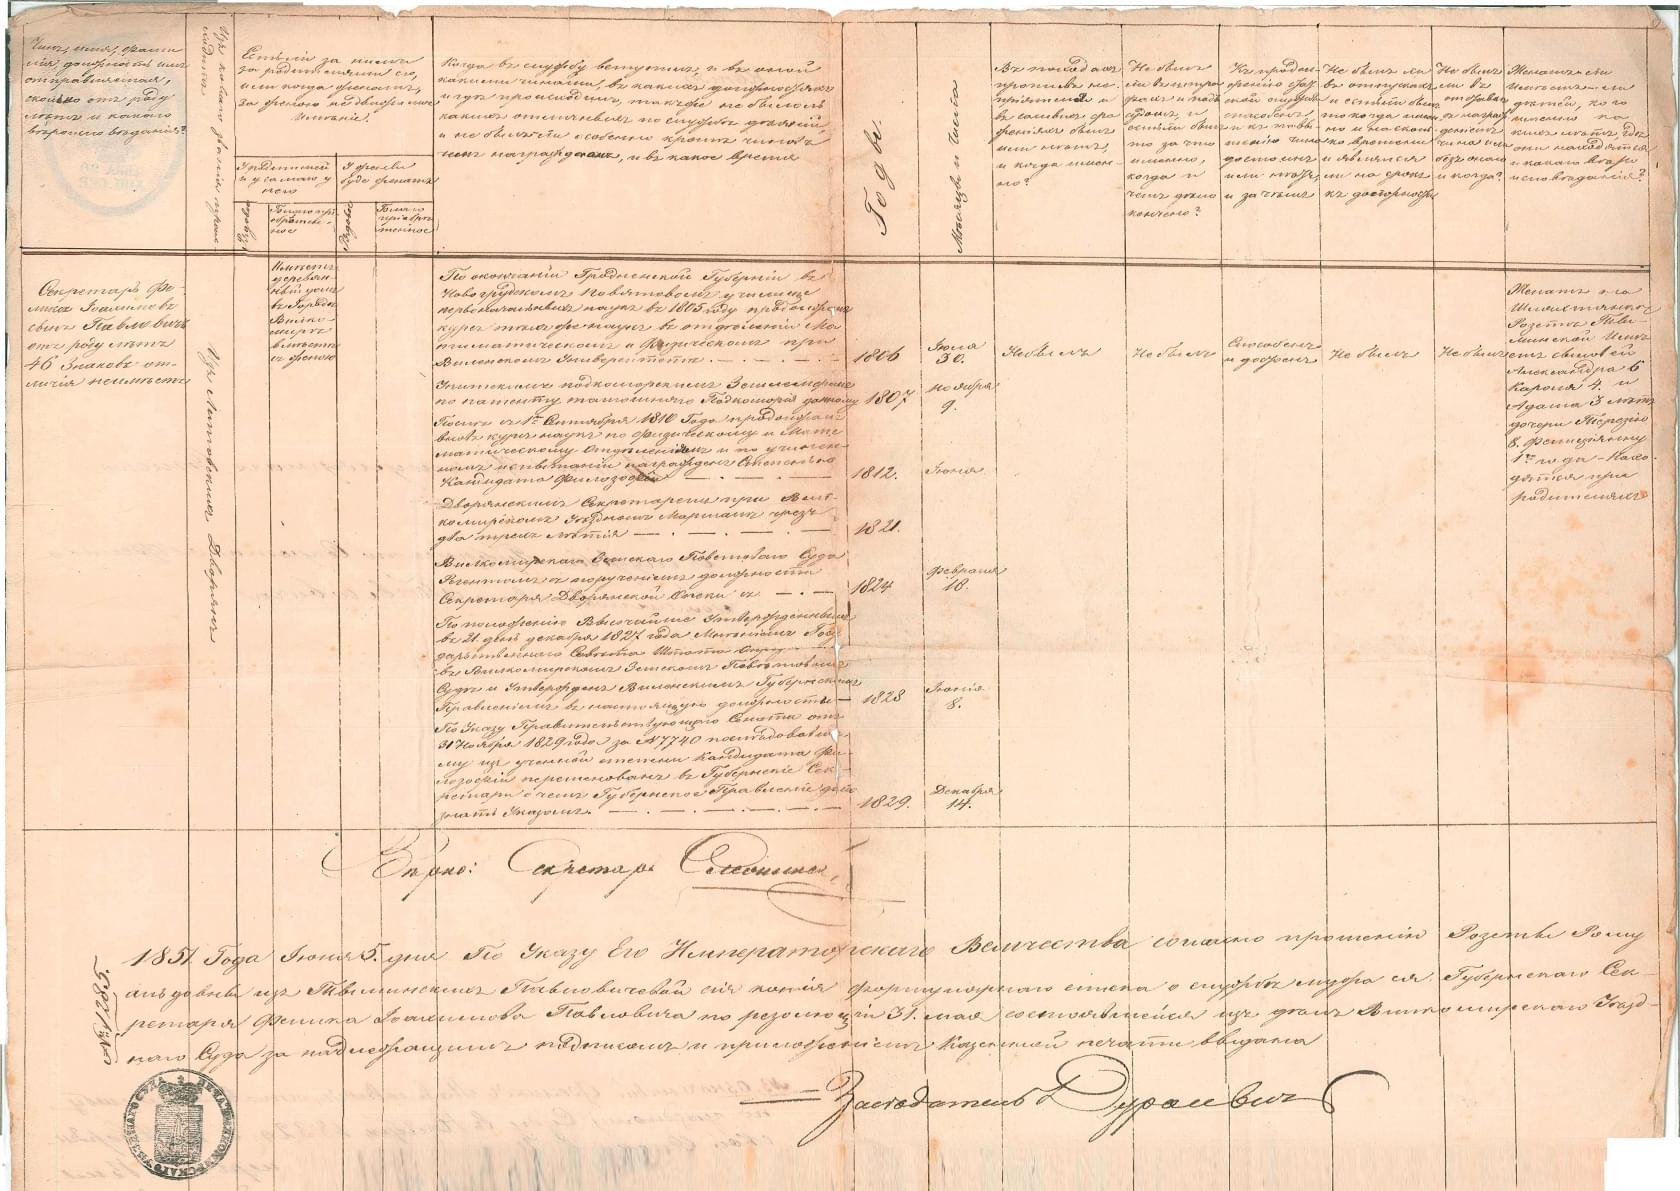 Чинъ, имя, фами
лія, должность имъ
отправляемая,
сколько отъ роду
лѣтъ и какого
вѣроисповѣданія?
Изъ какого званія происходитъ
Есть ли за нимъ
за родителями его,
или когда женатъ,
за женою недвижимое
имѣніе?
У родителей
и у самаго у
него
У жены
буде женатъ
Родовое
Благопріобрѣтенное
Родовое
Благопріобрѣтенное
Когда въ службу вступилъ и въ оной
какими чинами, въ какихъ должностяхъ
и гдѣ происходилъ, также не было ли
какихъ отличныхъ по службѣ дѣяній
и не былъ ли особенно кромѣ чиновъ
чемъ награжденъ, и въ какое время
Годы.
Мѣсяцы и Числа
Въ походахъ
противъ не
пріятеля и
въ самыхъ сра
женіяхъ былъ
или нѣтъ,
и когда имен
но?
Не былъ
ли въ штра
фахъ и подъ
судомъ, и
если былъ
то за что
именно,
когда и
чемъ дѣло
кончено?
Къ продол
женію ста
тской службы
способенъ
и къ повы
шенію чина
достоинъ
или нѣтъ,
и за чѣмъ
Не былъ ли
въ отпускахъ
и если былъ
то когда имен
но и на сколь
ко времени
и являлся
ли на срокъ
къ должности
Не былъ
ли въ
отставкѣ
съ награж
деніемъ
чина или
безъ онаго
и когда?
Женатъ ли
имѣетъ ли
дѣтей, кого
именно, ка
кихъ лѣтъ, гдѣ
они находятся
и какого вѣро
исповѣданія?
Секретарь Фе
ликсъ Іоахимовъ
сынъ Павловичъ
отъ роду лѣтъ
46 Знаковъ от
личія неимѣетъ
Изъ Литовскихъ Дворянъ
Имѣетъ
деревян
ный домъ
въ Городѣ
Вилко
мирѣ
вмѣстѣ
съ женою
По окончаніи Гродненской Губерніи въ
Новогрудскомъ Повятовомъ училище
первоначальныхъ наукъ въ 1805 году продолжалъ
курсъ наукъ въ отдѣленіи Ма
тематическомъ и Физическомъ при
Виленскомъ Университетѣ
1806
Іюля
30.
Не былъ
Не былъ
Способенъ
и достоенъ
Не былъ
Не былъ
Женатъ на
Шляхтянкѣ
Розетѣ
имѣ
етъ сыновей
Александра 6
Кароля 4. и
Адама 3 лѣтъ
дочери Терезію
8. Фелиціянну
1го года - Нахо
дятся при
родителяхъ
по патенту тамошняго Подкоморія данному
1807
Ноября
9.
Послѣ съ 1го Сентября 1810 Года продолжая
вновь курсъ наукъ по Физическому и Мате
матическому Отдѣленіямъ и по учинен
номъ испытаніи награжденъ Степенью
Кандидата Филозофіи
1812.
Іюня
Дворянскимъ Секретаремъ при Вил
комирскомъ Уѣздномъ Маршалѣ чрезъ
два трехъ лѣтія
1821.
Вилкомирскаго Земскаго Повѣтоваго Суда
Регентомъ съ порученіемъ должности
Секретаря Дворянской Опеки
1824
Февраля
18.
По положенію Высочайше Утвержденному
въ 21. день декабря 1827 года Мнѣніемъ Госу
дарственнаго Совѣта
въ Вилкомирскомъ Земскомъ Повѣтовомъ
Судѣ и Утвержденъ Виленскимъ Губернскимъ
Правленіемъ въ настоящую должность
1828
Іюнія
8.
По Указу Правительствующаго Сената отъ
31 Ноября 1829 года за №7740 послѣдовавше
му изъ ученой степени Кандидата Фи
лозофіи переменованъ въ Губернскіе Сек
ретари о чемъ Губернское Правленіе дало
знать Указомъ.
1829.
Декабря
14.
Вѣрно: Секретарь
1851 Года Іюня 5. дня По Указу Его Императорскаго Величества согласно прошенію Розеты Рому
альдовны изъ Павловичевой сія копія Формулярнаго списка о службѣ мужа ея. Губернскаго Сек
ретаря Феликса Іоахимова Павловича по резолюціи 31. мая состоявшейся изъ дѣлъ Вилкомирскаго Уѣзд
наго Суда за надлежащимъ подписомъ и приложеніемъ Казенной печати выдана
Засѣдатель